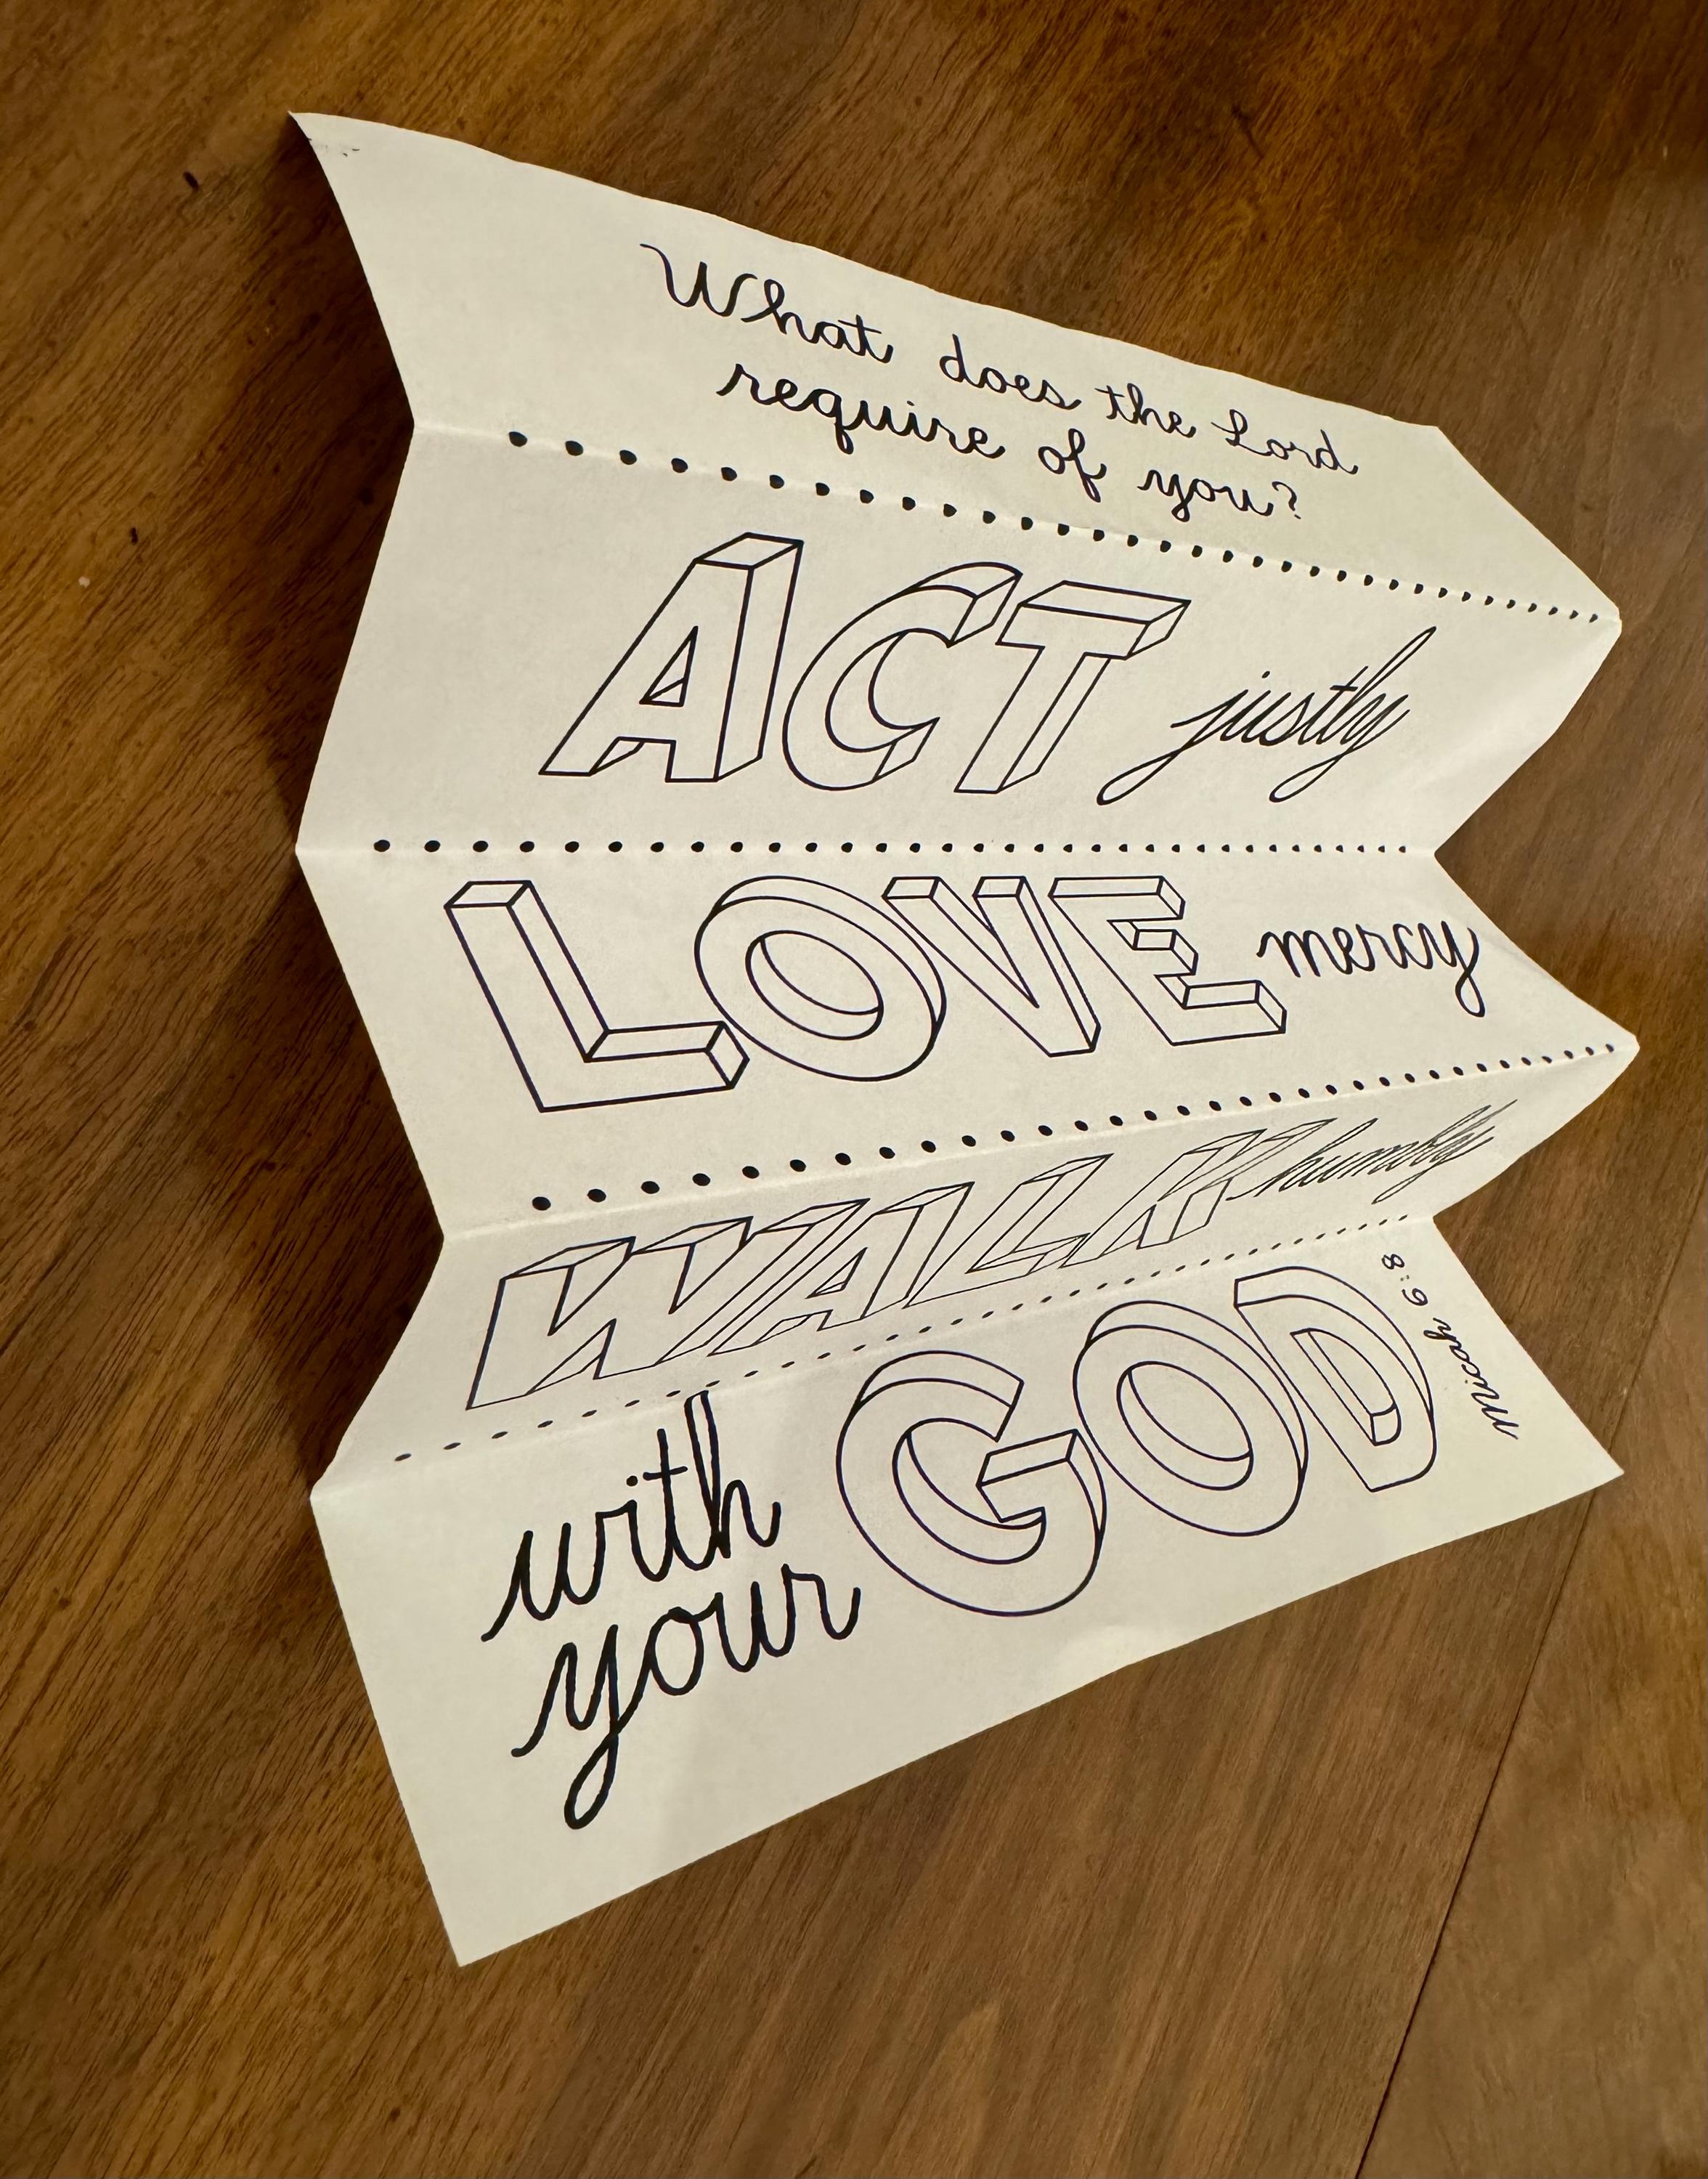 What does the Lord
require of you?
ACT justly
LOVE mercy
WALK humbly
with
your GOD
Miccah 6:8